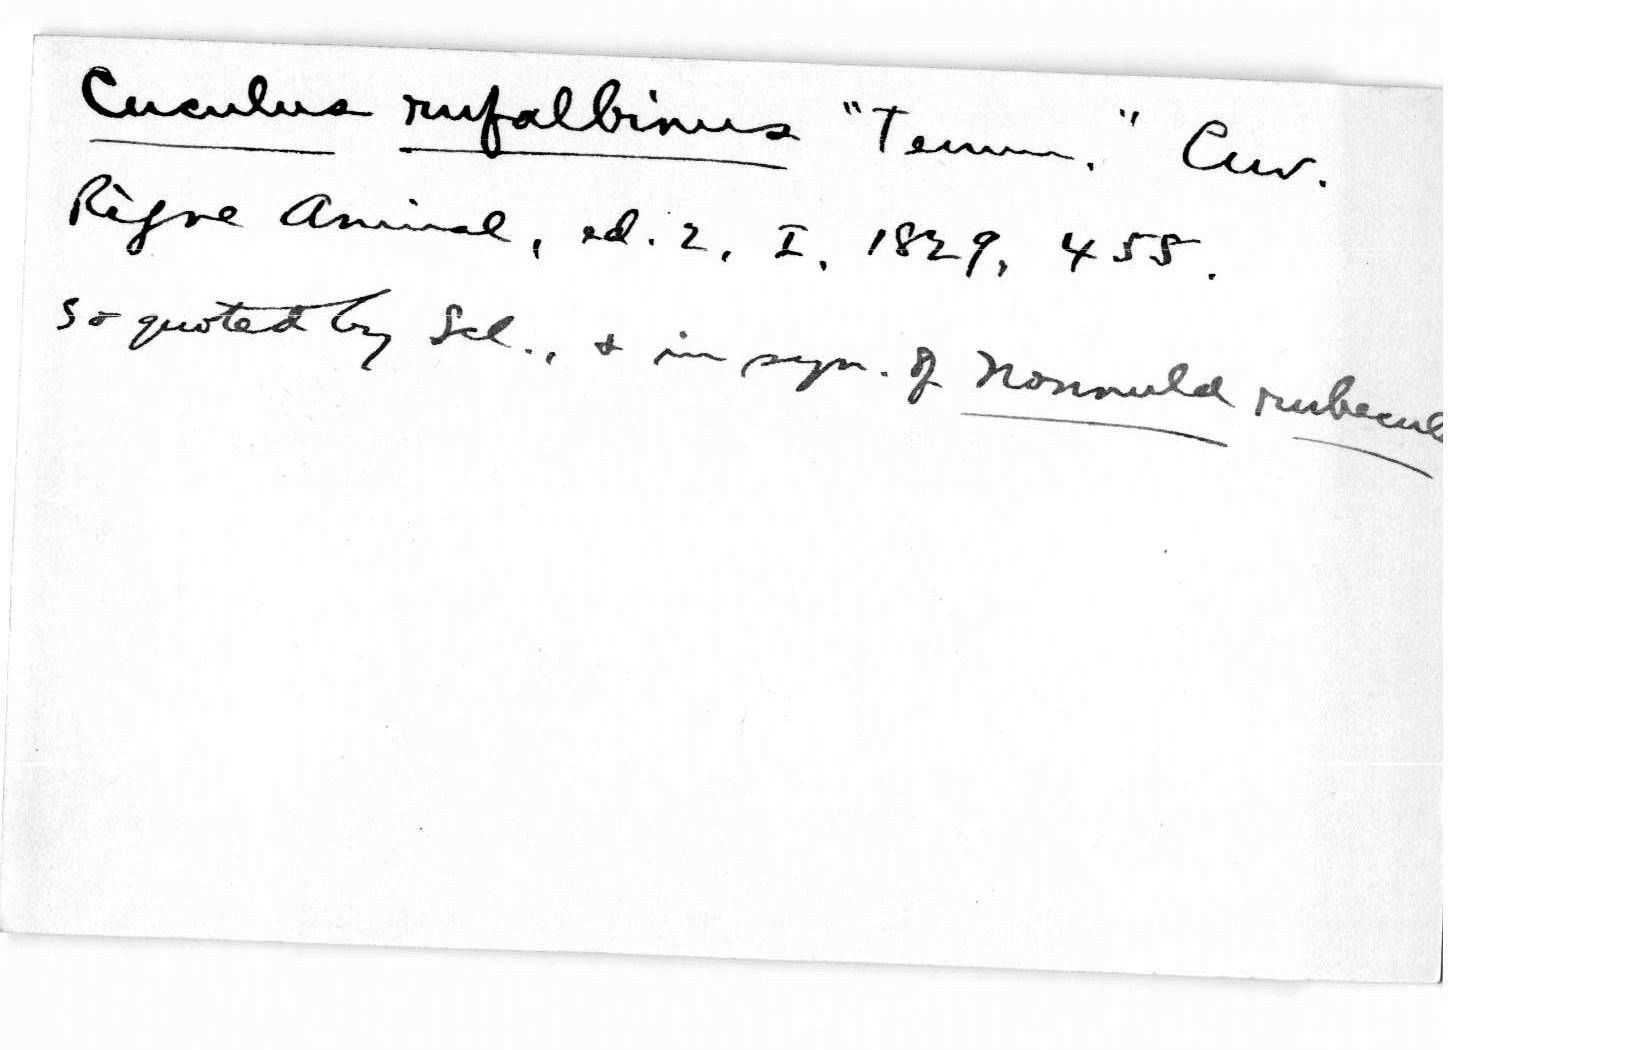 Cuculus rufalbinus "Temm." Cuv.
Règne Animal, ed. 2, I, 1829, 455.
So quoted by Scl., & in syn. of Nonnula rubecul